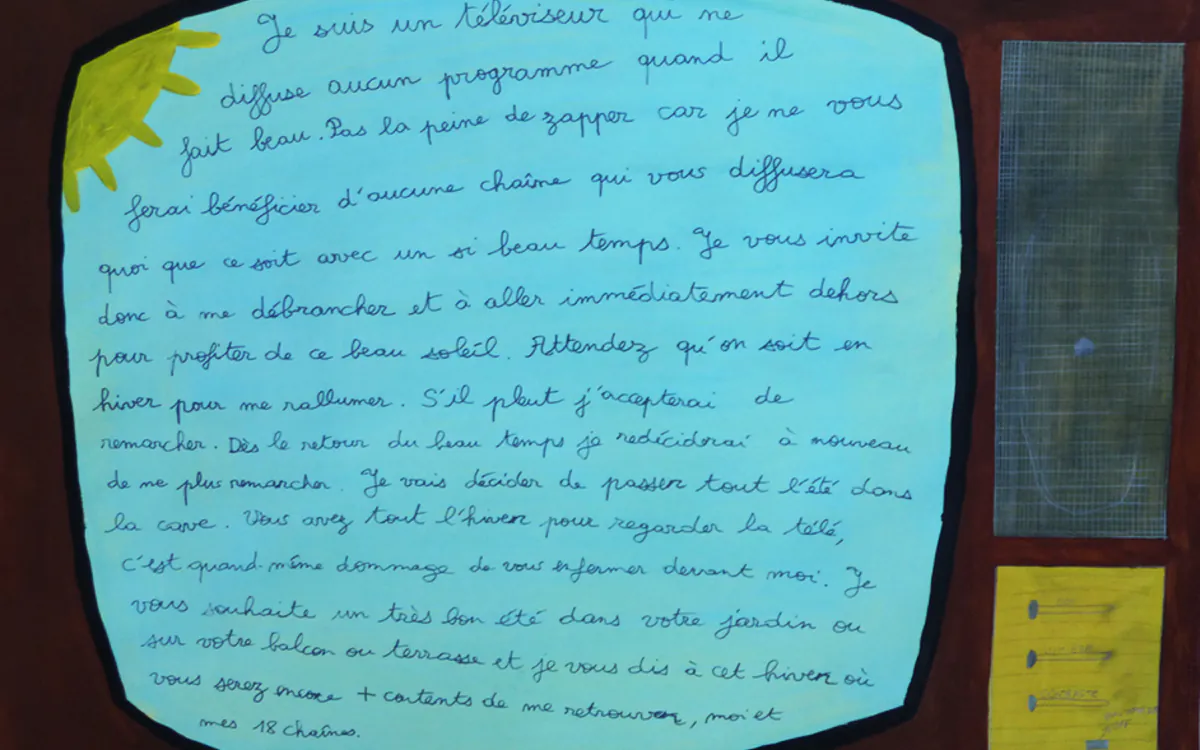 Je suis un téléviseur qui ne
diffuse aucun programme quand il
fait beau. Pas la peine de zapper car je ne vous
ferai bénéficier d'aucune chaîne qui vous diffusera
quoi que ce soit avec un si beau temps. Je vous invite
donc à me débrancher et à aller immédiatement dehors
pour profiter de ce beau soleil. Attendez qu'on soit en
hiver pour me rallumer. S'il pleut j'accepterai de
remarcher. Dès le retour du beau temps je redéciderai à nouveau
de me plus remarcher. Je vais décider de passer tout l'été dans
la cave. Vous avez tout l'hiver pour regarder la télé,
c'est quand-même dommage de vous enfermer devant moi. Je
vous souhaite un très bon été dans votre jardin ou
sur votre balcon ou terrasse et je vous dis à cet hiver où
vous serez encore + contents de me retrouver, moi et
mes 18 chaînes.